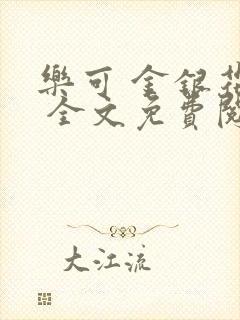 樂可 金銀花
全文免費閱
大江流